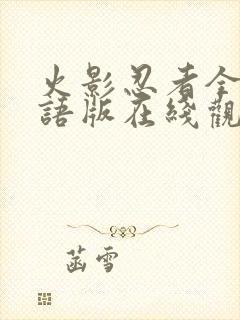 火影忍者全
語版在綫觀
菡雪